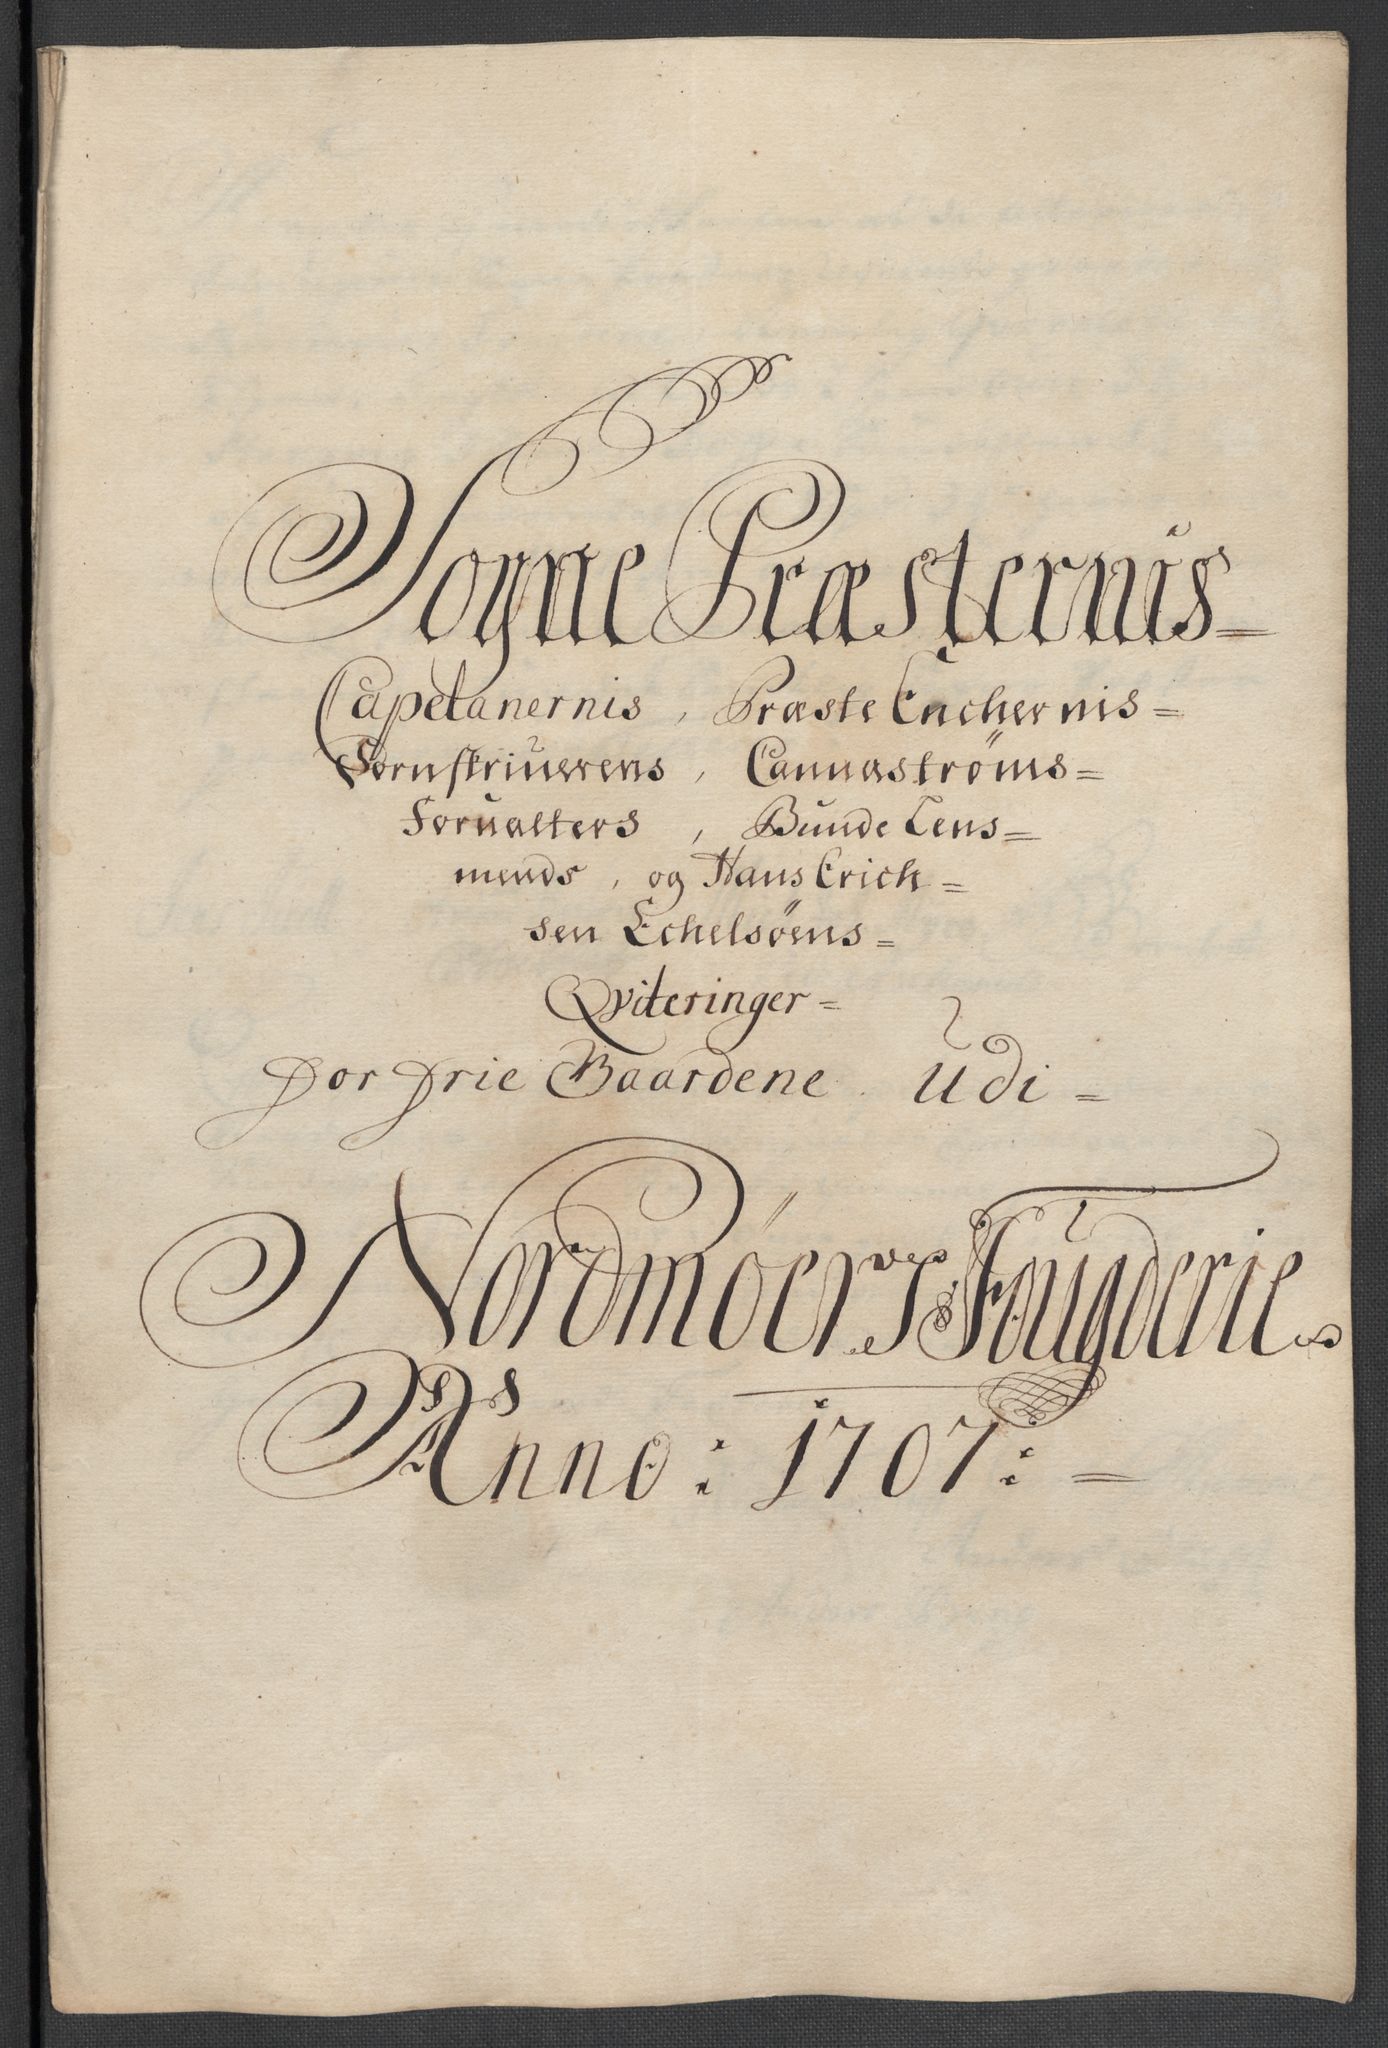 Sogne Præsternis=
Capelanernis, Præste Enchernis=
Sornskriuerens, Cannæströms=
Forualters, Bunde Lens=
mends, og Hans Erich=
sen Echelsöens=
Qviteringer=
For Frie Gaardene Udi=
Nordmöers Fougderie
Anno: 1707:=